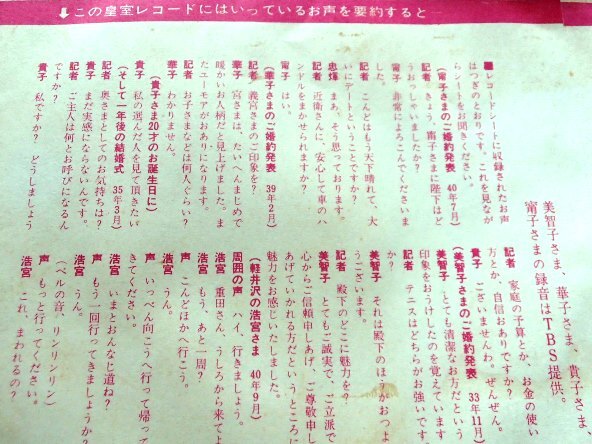 ⬇この皇室レコードにはいっているお声を要約すると―
美智子さま、華子さま、貴子さま、
甯子さまの録音はTBS提供。
■レコードシートに収録されたお声
はつぎのとおりです。これを見なが
らシートをお聞きください。
(甯子さまのご婚約発表 40年7月)
記者 きょう、甯子さまに陛下はど
うおっしゃいましたか?
甯子 非常によろこんでくださいま
した。
記者 こんどはもう天下晴れて、大
いにデートということですか?
忠煇 まあ、そう思っております。
記者 近衛さんに、安心して車のハ
ンドルをまかせられますか?
甯子 はい。
(華子さまのご婚約発表 39年2月)
記者 義宮さまのご印象を?
華子 宮さまは、たいへんまじめで
暖かいお人柄だと見上げました。ま
たユーモアがおありになります。
記者 お子さまなどは何人ぐらい?
華子 わかりません。
(貴子さま20才のお誕生日に)
貴子 私の選んだ人を見て頂きたい
(そして一年後の結婚式 35年3月)
記者 奥さまとしてのお気持ちは?
貴子 まだ実感にならないんです。
記者 ご主人は何とお呼びになるん
ですか?
貴子 私ですか? どうしましょう
記者 家庭の予算とか、お金の使い
方とか、自信おありですか?
貴子 ございませんわ。ぜんぜん。
(美智子さまのご婚約発表 33年11月)
美智子 とても清潔なお方だという
印象をおうけしたのを覚えています
記者 テニスはどちらがお強いです
か?
美智子 それは殿下のほうがおつよ
うございます。
記者 殿下のどこに魅力を?
美智子 とてもご誠実で、ご立派で
心からご信頼申しあげ、ご尊敬申し
あげていかれる方だというところに
魅力をお感じいたしました。
(軽井沢の浩宮さま 40年9月)
周囲の声 ハイ、行きましょう。
浩宮 重田さん、うしろから来てよ
浩宮 もう、あと一周?
声 こんどはほかへ行こう。
浩宮 うん。
声 いっぺん向こうへ行って帰って
きてください。
浩宮 いまとおんなじ道ね?
声 もう一回行ってきましょうか?
浩宮 うん。
(ベルの音、リンリンリン)
声 もっと行ってください。
浩宮 これ、まわれるの?